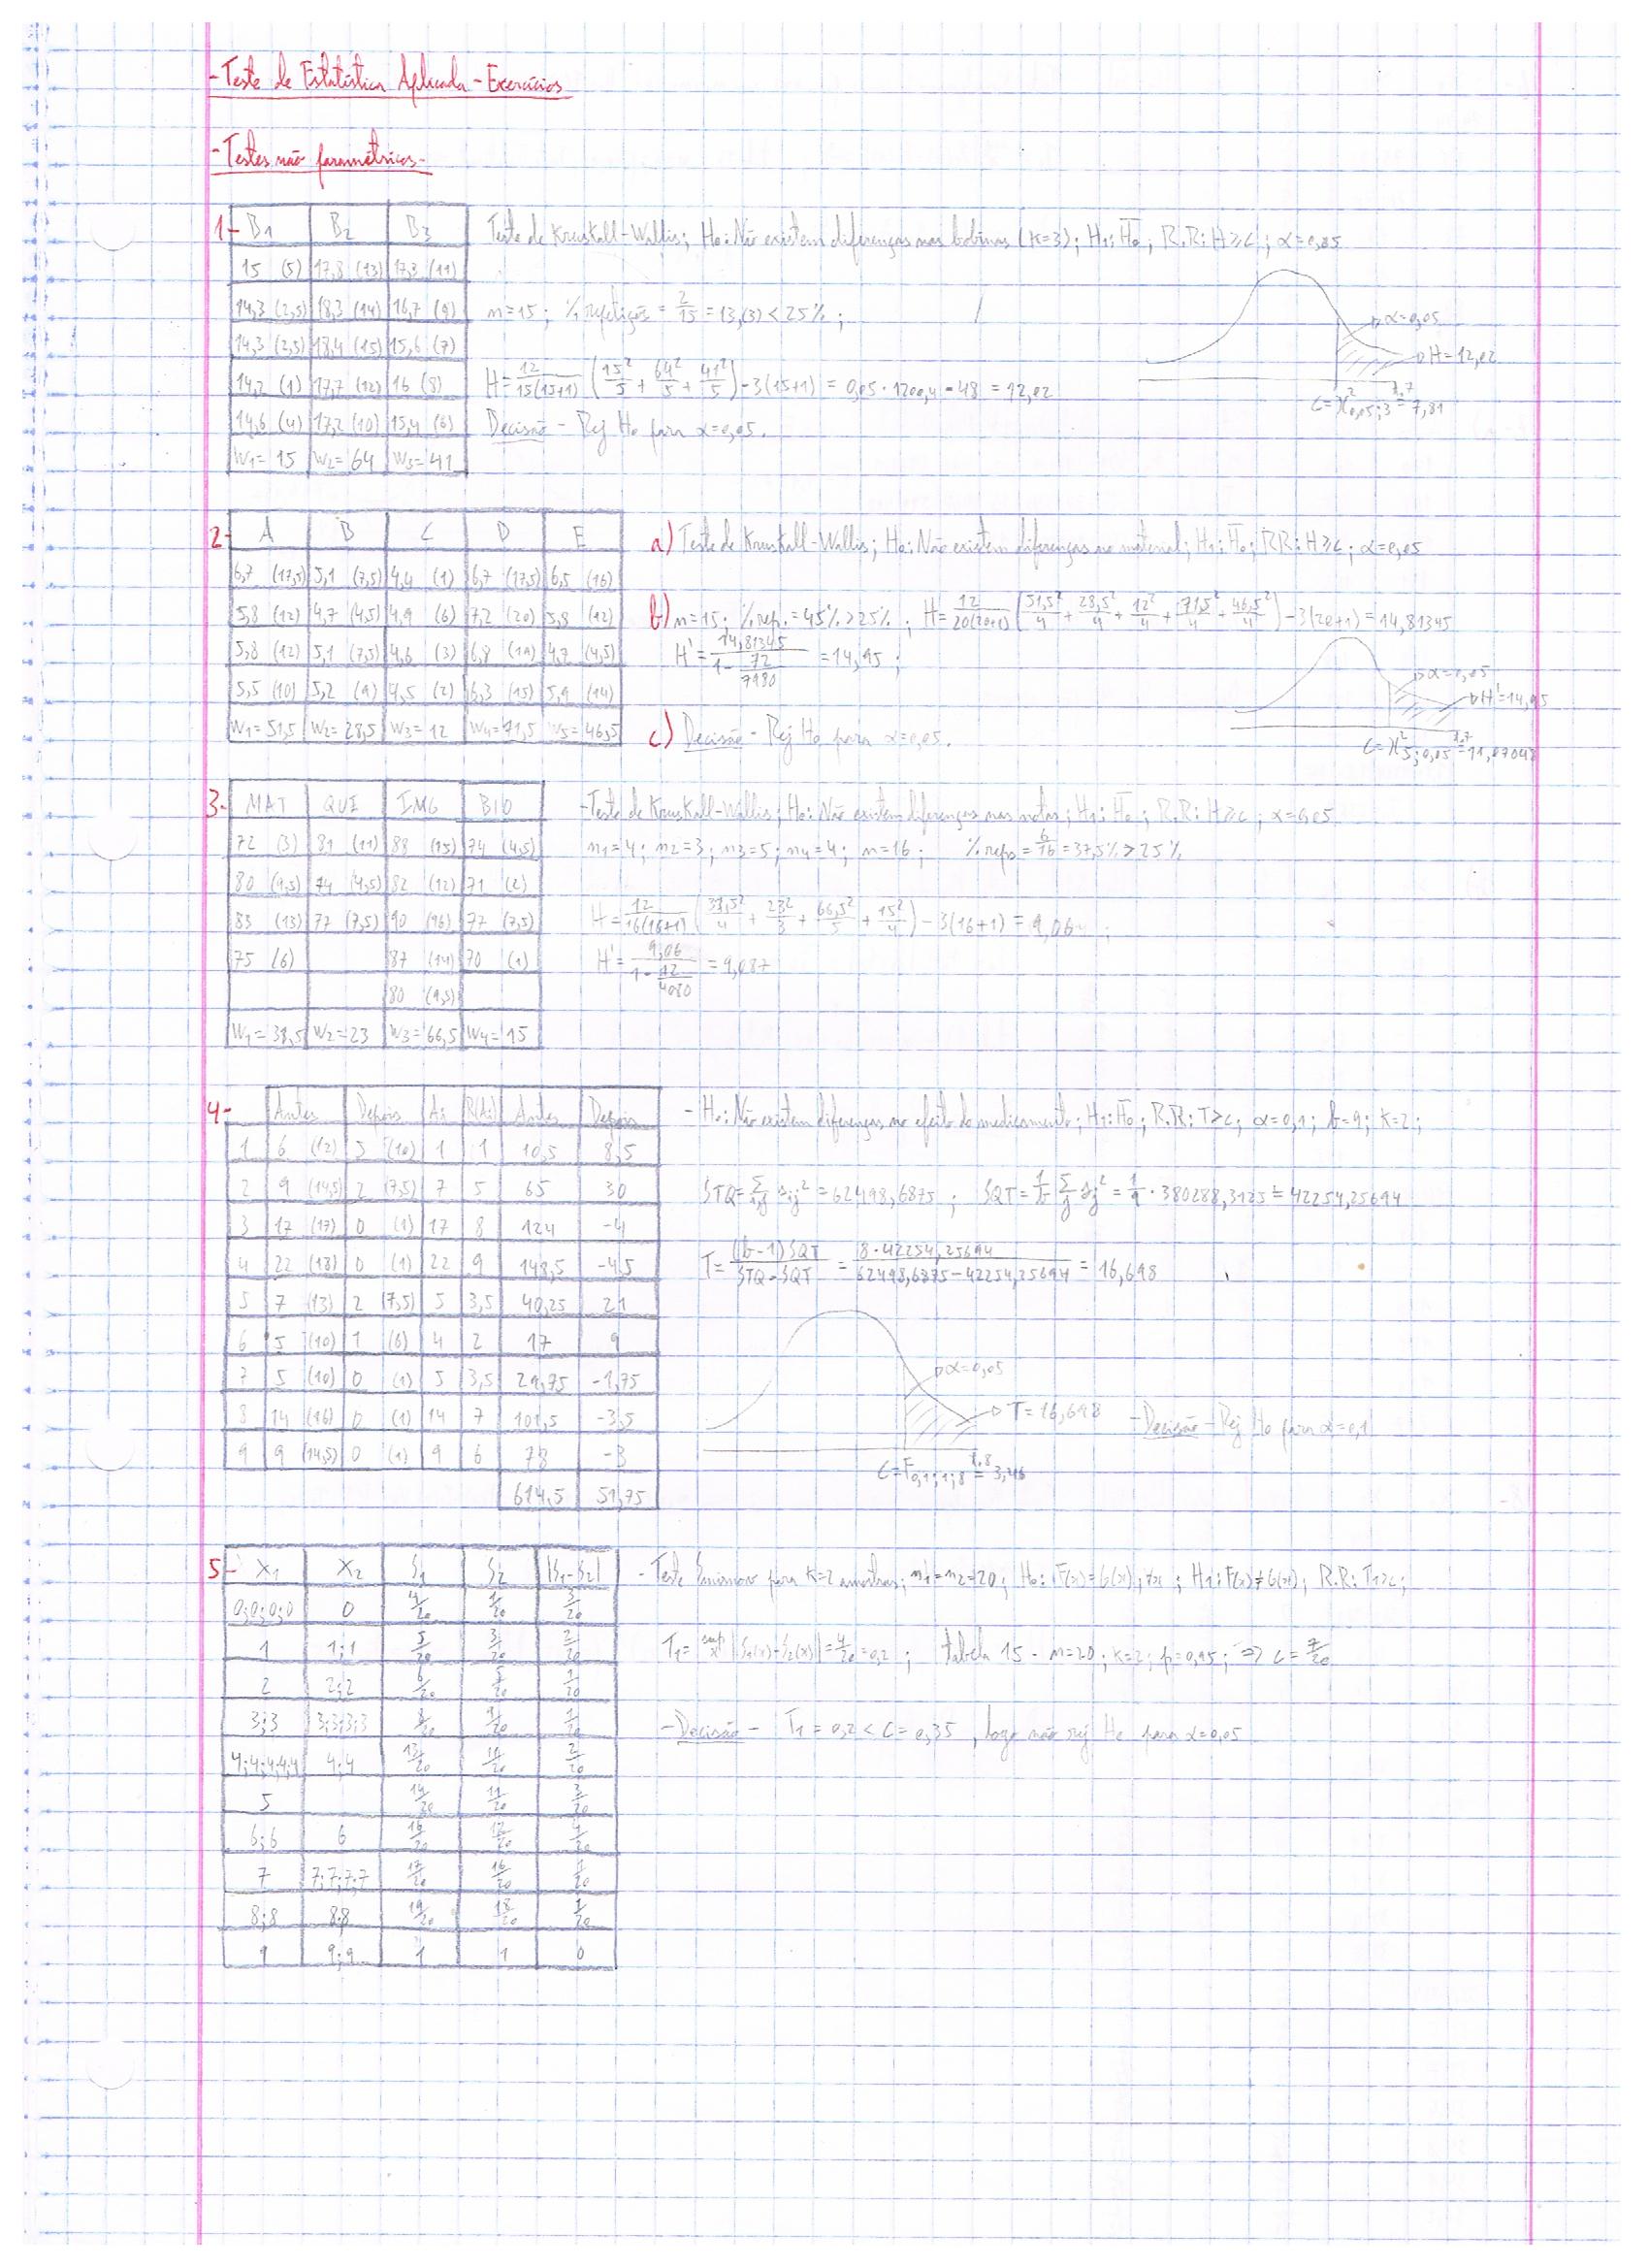 - Teste de Estatística Aplicada - Exercícios
- Testes não paramétricos -
1- B1 B2 B3
15 (5) 17,8 (13) 17,3 (11)
14,3 (2,5) 18,3 (14) 16,7 (9)
14,3 (2,5) 18,4 (15) 15,6 (7)
14,2 (1) 17,7 (12) 16 (8)
14,6 (4) 17,2 (10) 15,4 (6)
W1= 15 W2= 64 W3= 41
Teste de Kruskall-Wallis; H0: Não existem diferenças nas bobinas (K=3); H1: H̅0; R.R: H≥c; α=0,05
n=15; % repetições = 2/15 = 13,(3) < 25%;
H = 12/15(15+1) (15²/5 + 64²/5 + 41²/5) - 3(15+1) = 0,05 · 1200,4 - 48 = 12,02
Decisão - Rej H0 para α=0,05.
α=0,05
H=12,02
c=χ²0,05;3 = 7,81
2- A B C D E
6,7 (17,5) 5,1 (7,5) 4,4 (1) 6,7 (17,5) 6,5 (16)
5,8 (12) 4,7 (4,5) 4,9 (6) 7,2 (20) 5,8 (12)
5,8 (12) 5,1 (7,5) 4,6 (3) 6,8 (19) 4,7 (4,5)
5,5 (10) 5,2 (9) 4,5 (2) 6,3 (15) 5,9 (14)
W1= 51,5 W2= 28,5 W3= 12 W4= 71,5 W5= 46,5
a) Teste de Kruskall-Wallis; H0: Não existem diferenças no material; H1: H̅0; R.R: H≥c; α=0,05
b) n=15; % rep. = 45% > 25%; H = 12/20(20+1) (51,5²/4 + 28,5²/4 + 12²/4 + 71,5²/4 + 46,5²/4) - 3(20+1) = 14,81345
H' = 14,81345/(1 - 72/7980) = 14,95;
α=0,05
H'=14,95
c=χ²5;0,05 = 11,07048
c) Decisão - Rej H0 para α=0,05.
3- MAT QUI ING BIO
72 (3) 81 (11) 88 (15) 74 (4,5)
80 (9,5) 74 (4,5) 82 (12) 71 (2)
83 (13) 77 (7,5) 90 (16) 77 (7,5)
75 (6) 87 (14) 70 (1)
80 (9,5)
W1= 38,5 W2= 23 W3= 66,5 W4= 15
- Teste de Kruskall-Wallis; H0: Não existem diferenças nas notas; H1: H̅0; R.R: H≥c; α=0,05
n1=4; n2=3; n3=5; n4=4; n=16; % rep. = 6/16 = 37,5% > 25%
H = 12/16(16+1) (38,5²/4 + 23²/3 + 66,5²/5 + 15²/4) - 3(16+1) = 9,06;
H' = 9,06/(1 - 12/4080) = 9,087
4- Antes Depois Ai R(Ai) Antes Depois
1 6 (12) 5 (10) 1 1 10,5 8,5
2 9 (14,5) 2 (7,5) 7 5 65 30
3 17 (17) 0 (1) 17 8 124 -4
4 22 (18) 0 (1) 22 9 148,5 -4,5
5 7 (13) 2 (7,5) 5 3,5 40,25 21
6 5 (10) 1 (6) 4 2 17 9
7 5 (10) 0 (1) 5 3,5 29,75 -1,75
8 14 (16) 0 (1) 14 7 101,5 -3,5
9 9 (14,5) 0 (1) 9 6 78 -3
614,5 51,75
- H0: Não existem diferenças no efeito do medicamento; H1: H̅0; R.R: T>c; α=0,1; b=9; K=2;
STQ = Σij sij² = 62498,6875; SQT = 1/b Σj sj² = 1/9 · 380288,3125 = 42254,25694
T = (b-1) SQT/(STQ - SQT) = 8 · 42254,25694/(62498,6875 - 42254,25694) = 16,698
α=0,05
T=16,698
c=F0,1;1;8 = 3,46
- Decisão - Rej H0 para α=0,1
5- X1 X2 S1 S2 |S1-S2|
0;0;0;0 0 4/20 1/20 3/20
1 1;1 5/20 3/20 2/20
2 2;2 6/20 5/20 1/20
3;3 3;3;3;3 8/20 9/20 1/20
4;4;4;4;4 4;4 13/20 11/20 2/20
5 14/20 11/20 3/20
6;6 6 16/20 12/20 4/20
7 7;7;7;7 17/20 16/20 1/20
8;8 8;8 19/20 18/20 1/20
9 9;9 1 1 0
- Teste Smirnov para K=2 amostras; n1=n2=20; H0: F(x)=G(x), ∀x; H1: F(x)≠G(x); R.R: T1>c;
T1 = sup x |S1(x)-S2(x)| = 4/20 = 0,2; tabela 15 - n=20; K=2; p=0,95; ⇒ c = 7/20
- Decisão - T1 = 0,2 < c = 0,35, logo não rej H0 para α=0,05